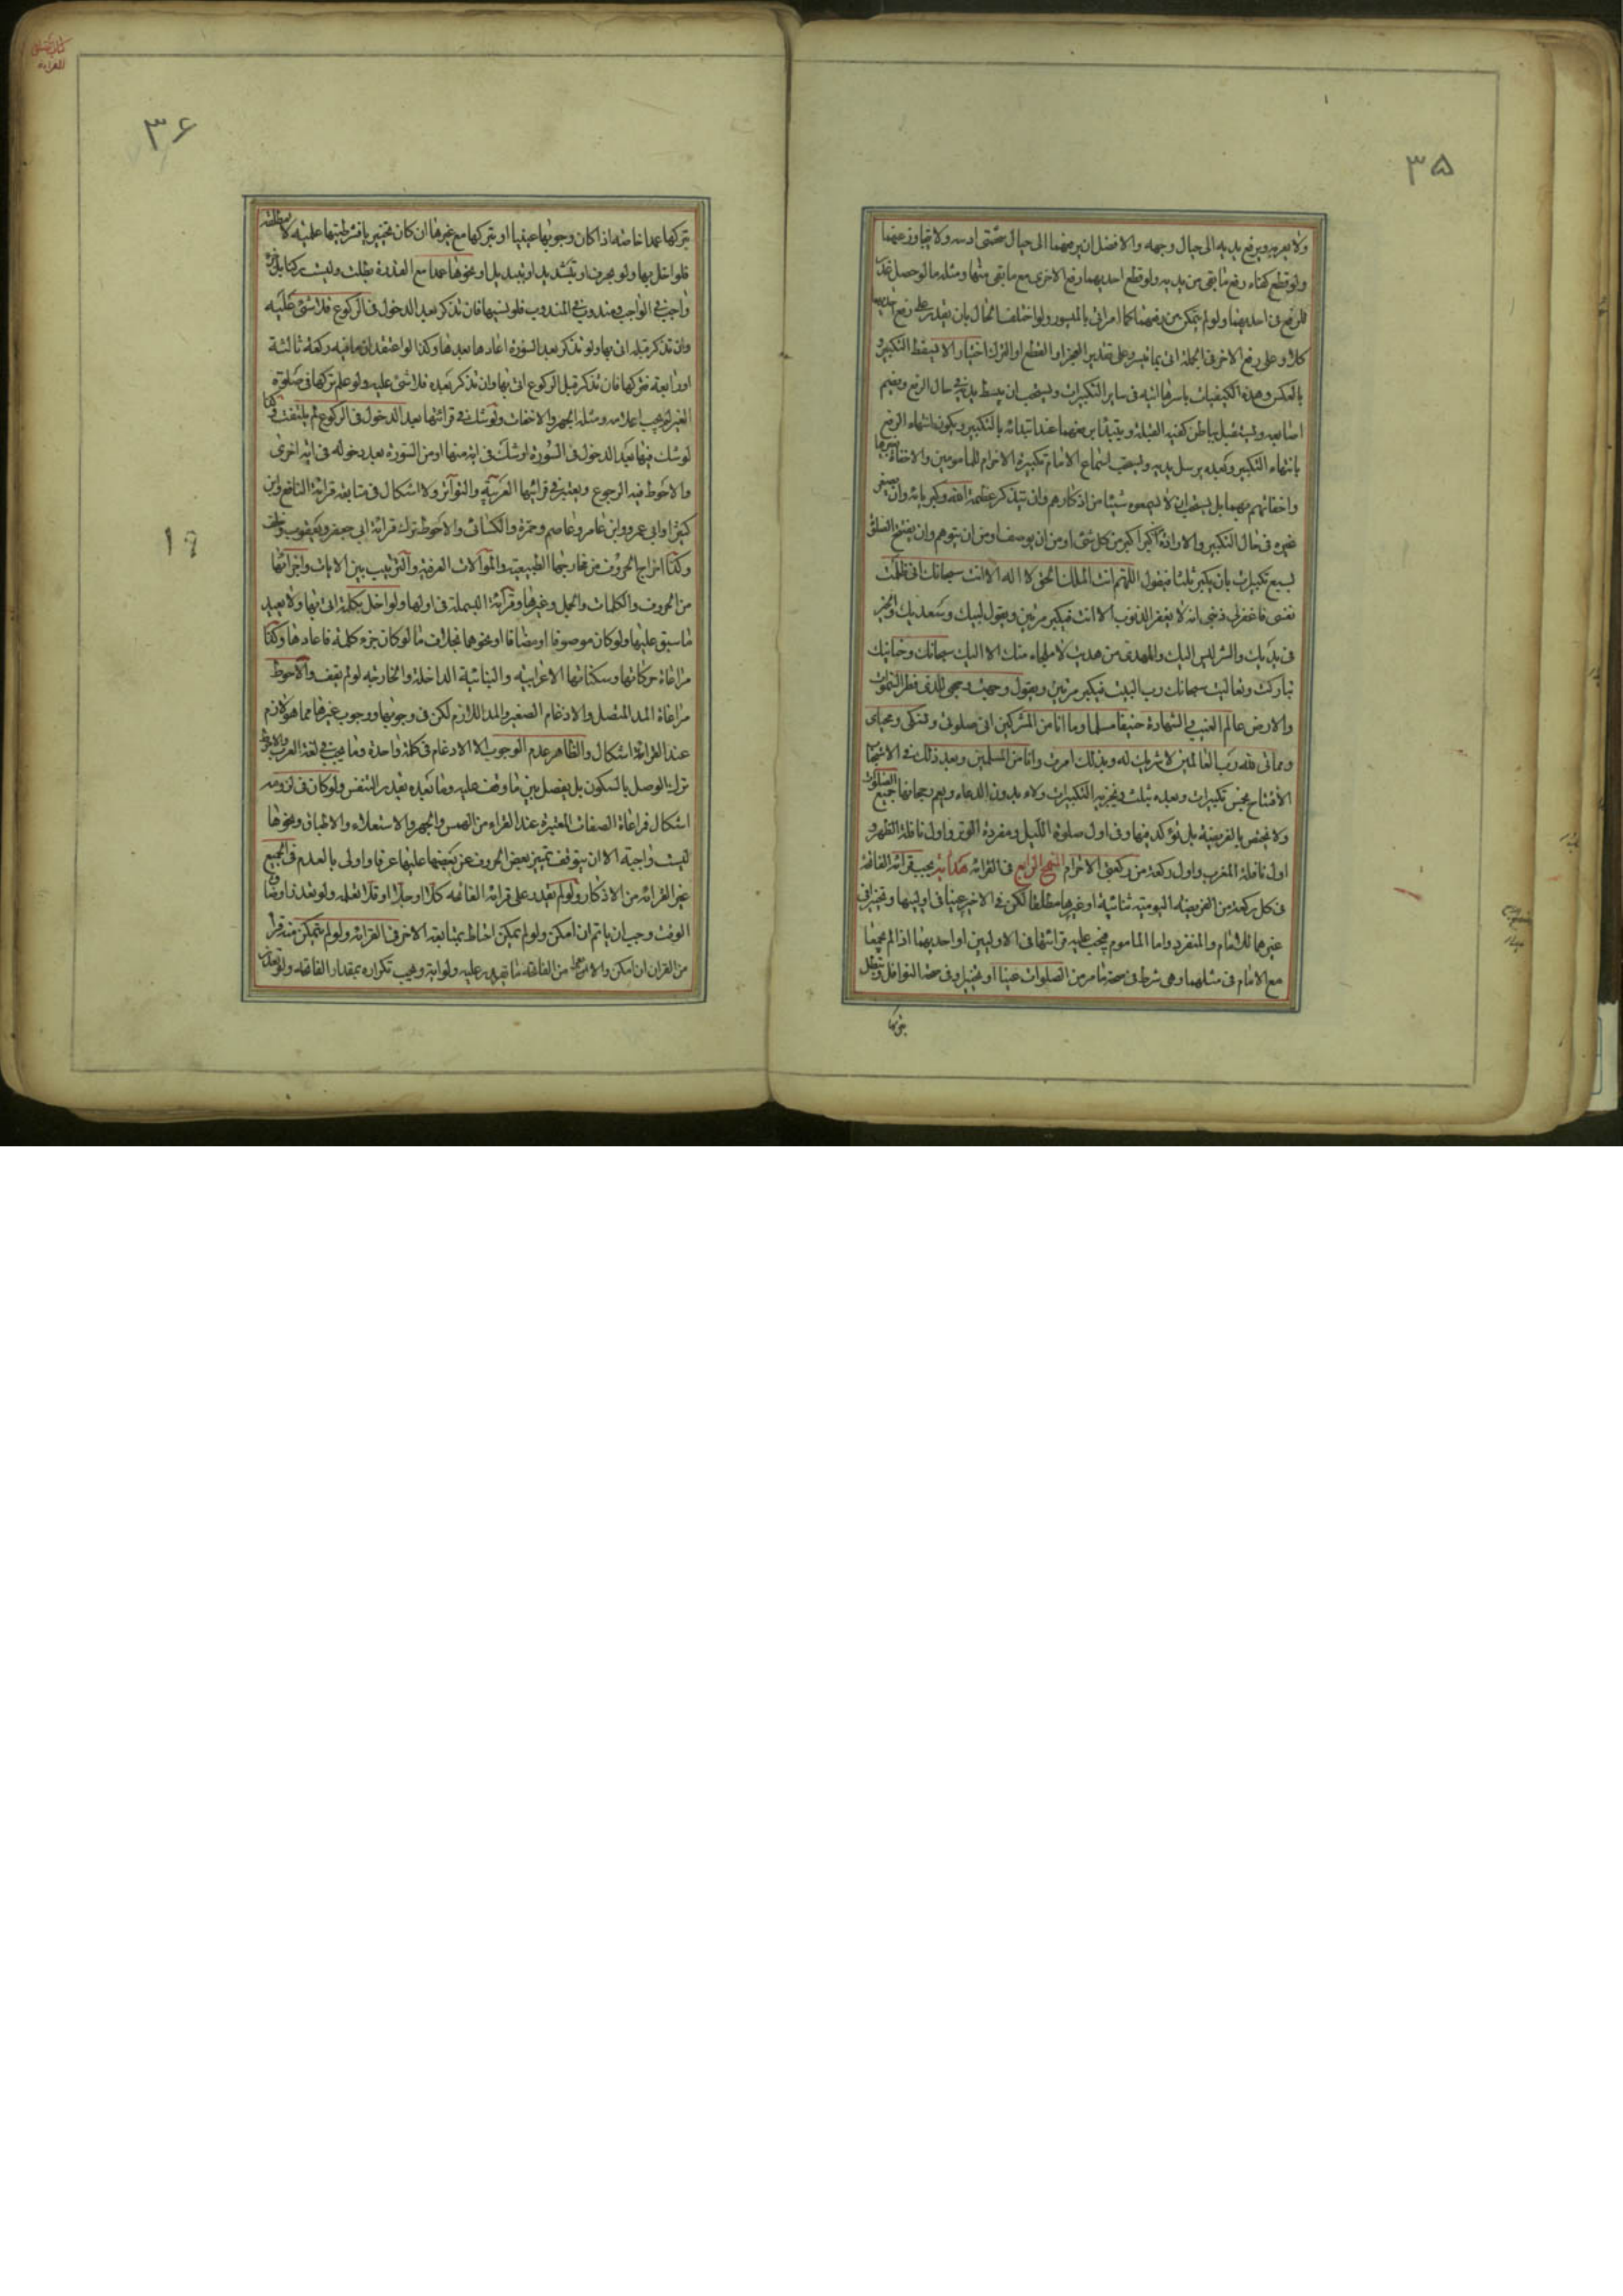 ۳۵
ولا يعربه ويرفع يديه الى حيال وجهه والافضل ان يرفعهما الى حيال شحمتى اذنيه ولا يتجاوز عنهما
ولو قطع كفتاه رفع ما بقى من يديه ولو قطع احديهما رفع الاخرى مع ما بقى منها ومثله ما لو حصل
فلو رفع فى احديهما ولو لم يتمكن من رفعهما كما امر اتى بالميسور ولو اختلف الحال بان يقدر على رفع احديهما
كلا وعلى رفع الاخر فى الجملة اتى بما تيسر وعلى تقدير العجز او القطع او الترك اختيارا لا يسقط التكبير
بالعكس وهذه الكيفيات باسرها اتيه فى ساير التكبيرات ويستحب ان يبسط يديه فى حال الرفع ويضم
اصابعه ويستقبل بباطن كفيه القبلة ويبتدأ برفعهما عند ابتدائه بالتكبير ويكون انتهاء الرفع
بانتهاء التكبير وبعده يرسل يديه ويستحب اسماع الامام تكبيرة الاحرام للمامومين والاخفات بغيرها
واخفائهم بهما بل يستحب ان لا يسمعوه شيئا من اذكارهم وان يتذكر عظمة الله وكبريائه وان
غيره فى حال التكبير والارادة اكبر من كل شئ او من ان يوصف او من ان يتوهم وان يفتتح الصلوة
بسبع تكبيرات بان يكبر ثلثا فيقول اللهم انت الملك الحق لا اله الا انت سبحانك انى ظلمت
نفسى فاغفرلى ذنبى انه لا يغفر الذنوب الا انت فيكبر مرتين ويقول لبيك وسعديك والخير
فى يديك والشر ليس اليك والمهدى من هديت لا ملجاء منك الا اليك سبحانك وحنانيك
تباركت وتعاليت سبحانك رب البيت فيكبر مرتين ويقول وجهت وجهى للذى فطر السموات
والارض عالم الغيب والشهادة حنيفا مسلما وما انا من المشركين ان صلوتى ونسكى ومحياى
ومماتى لله رب العالمين لا شريك له وبذلك امرت وانا من المسلمين وبعد ذلك فى الاستحباب
الافتتاح بخمس تكبيرات وبعده بثلث ويجزيه التكبيرات ولاء بدون الدعاء ويعم رجحانها جميع الصلوات
ولا يختص بالفريضة بل يتؤكد فيها وفى اول صلوة الليل ومفردة الوتر واول نافلة الظهر و
اول نافلة المغرب واول ركعة من ركعتى الاحرام المنهج الرابع فى القرائة هداية يجب قرائة الفاتحة
فى كل ركعة من الفريضة اليومية ثنائية او غيرها مطلقا لكن فى الاخير عينا فى اوليها وتخير فى
غيرهما للامام والمنفرد واما الماموم فيجب عليه قرائتها فى الاوليين او احديهما اذا لم يجمعا
مع الامام فى مثلهما وهى شرط فى صحة ما مر من الصلوات عينا او تخييرا وفى صحة النوافل وتبطل
بتركها
۳۶
بتركها عمدا خاصة اذا كان وجوبها عينيا او بتركها مع غيرها ان كان تخييريا فشرطيتها علمية لا مطلقة
فلو اخل بها ولو بحرف او تشديد او تبديل او نحوها عمدا مع القدرة بطلت وليست ركنا بل
واجب فى الواجب ومندوب فى المندوب فلو نسيها فان تذكر بعد الدخول فى الركوع فلا شئ عليه
وان تذكر قبله اتى بها ولو تذكر بعد السورة اعادها بعدها وكذا لو اعتقد ان ما فيه ركعة ثالثة
او رابعة فتركها فان تذكر قبل الركوع اتى بها وان تذكر بعده فلا شئ عليه ولو علم تركها فى صلوة
الغير لم يجب اعلامه ومثله الجهر والاخفات ولو شك فى قرائتها بعد الدخول فى الركوع لم يلتفت وكذا
لو شك فيها بعد الدخول فى السورة او شك فى اية منها او من السورة بعد دخوله فى اية اخرى
والاحوط فيه الرجوع ويعتبر فى قرائتها العربية والتواتر ولا اشكال فى متابعة قرائة النافع وابن
كثير او ابى عمرو وابن عامر وعاصم وحمزة والكسائى والاحوط ترك قرائة ابى جعفر ويعقوب وخلف
وكذا اخراج الحروف من مخارجها الطبيعية والموالات العرفية والترتيب بين الايات واجزائها
من الحروف والكلمات والجمل وغيرها وقرائة البسملة فى اولها ولو اخل بكلمة اتى بها ولا يعيد
ما سبق عليها ولو كان موصوفا او مضافا او نحوهما بخلاف ما لو كان جزء كلمة فاعادها وكذا
مراعاة حركاتها وسكناتها الاعرابية والبنائية الداخلة والخارجة لو لم يقف والاحوط
مراعاة المد المتصل والادغام الصغير والمد اللازم لكن فى وجوبها ووجوب غيرها مما هو لازم
عند القرائة اشكال والظاهر عدم الوجوب الا الادغام فى كلمة واحدة وما يجب فى لغة العرب والاحوط
ترك الوصل بالسكون بل يفصل بين ما وقف عليه وما بعده بقدر التنفس ولو كان فى لزومه
اشكال فمراعاة الصفات المعتبرة عند القراء من الهمس والجهر والاستعلاء والاطباق ونحوها
ليست واجبة الا ان يتوقف تميز بعض الحروف عن بعضها عليها عرفا واولى بالعدم فى الجميع
غير القرائة من الاذكار ولو لم يقدر على قرائة الفاتحة كلا او جلا او قلا تعلمه ولو تعذر وضاق
الوقت وجب ان ياتم ان امكن ولو لم يمكن احتاط بمتابعة الاخر فى القرائة ولو لم يتمكن منه قرا
من القران ان امكن والا من الفاتحة ما تيسر عليه ولو اية ويجب تكراره بمقدار الفاتحة ولو تعذر
۱۹